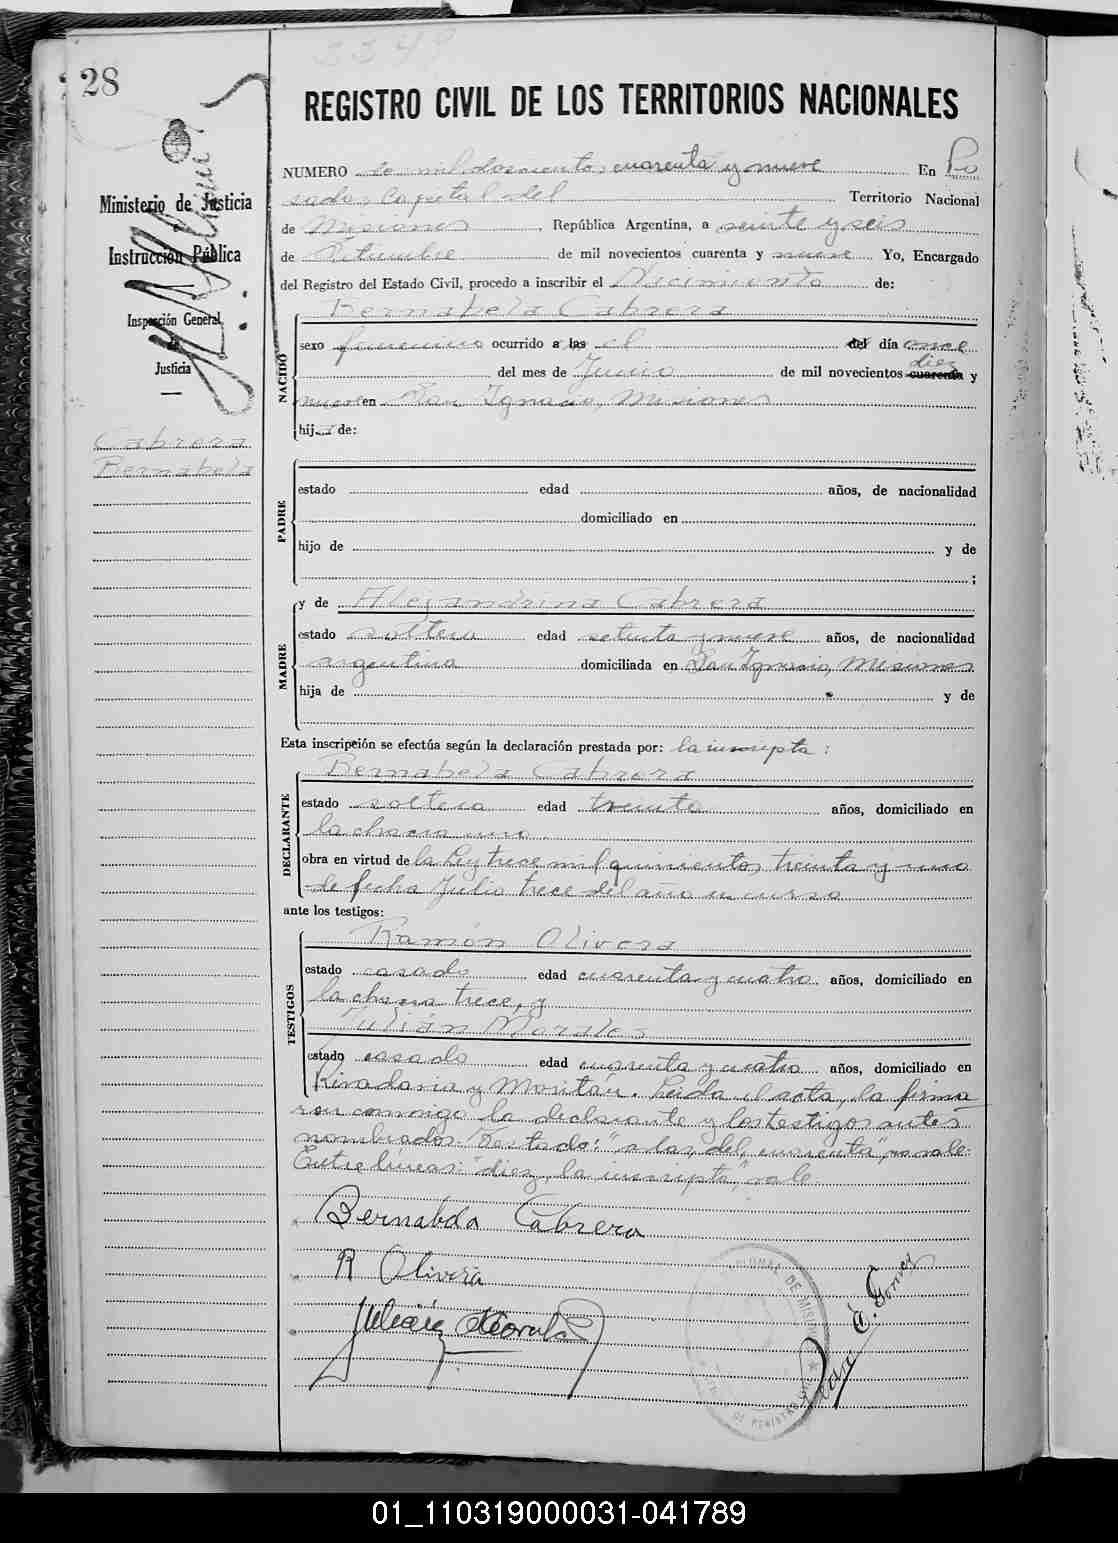 28
REGISTRO CIVIL DE LOS TERRITORIOS NACIONALES
NUMERO dos mil doscientos cuarenta y nueve En Po
sadas Capital del Territorio Nacional
de Misiones, República Argentina, a veinte y seis
de Setiembre de mil novecientos cuarenta y nueve Yo, Encargado
del Registro del Estado Civil, procedo a inscribir el Nacimiento de:
Ministerio de Justicia
e
Instrucción Pública
Inspección General
de
Justicia
Cabrera
Bernabela
NACIDO
Bernabela Cabrera
sexo femenino ocurrido a las el del día once
diez
del mes de Junio de mil novecientos cuarenta y
nueve en San Ignacio, Misiones
hija de:
PADRE
estado edad años, de nacionalidad
domiciliado en
hijo de y de
;
MADRE
y de Alejandrina Cabrera
estado soltera edad setenta y nueve años, de nacionalidad
argentina domiciliada en San Ignacio, Misiones
hija de y de
Esta inscripción se efectúa según la declaración prestada por: la inscripta:
DECLARANTE
Bernabela Cabrera
estado soltera edad treinta años, domiciliado en
la chacra uno
obra en virtud de la Ley trece mil quinientos treinta y uno
de fecha Julio trece del año en curso
ante los testigos:
TESTIGOS
Ramón Olivera
estado casado edad cuarenta y cuatro años, domiciliado en
la chacra trece, y
Julián Morales
estado casado edad cuarenta y cuatro años, domiciliado en
Rivadavia y Moritán. Leída el acta, la firma
ron conmigo la declarante y los testigos antes
nombrados. Testado: "a las, del, cuarenta", no vale.
Entre líneas: "diez, la inscripta", vale.
Bernabela Cabrera
R Olivera
Julián Morales
01_110319000031-041789